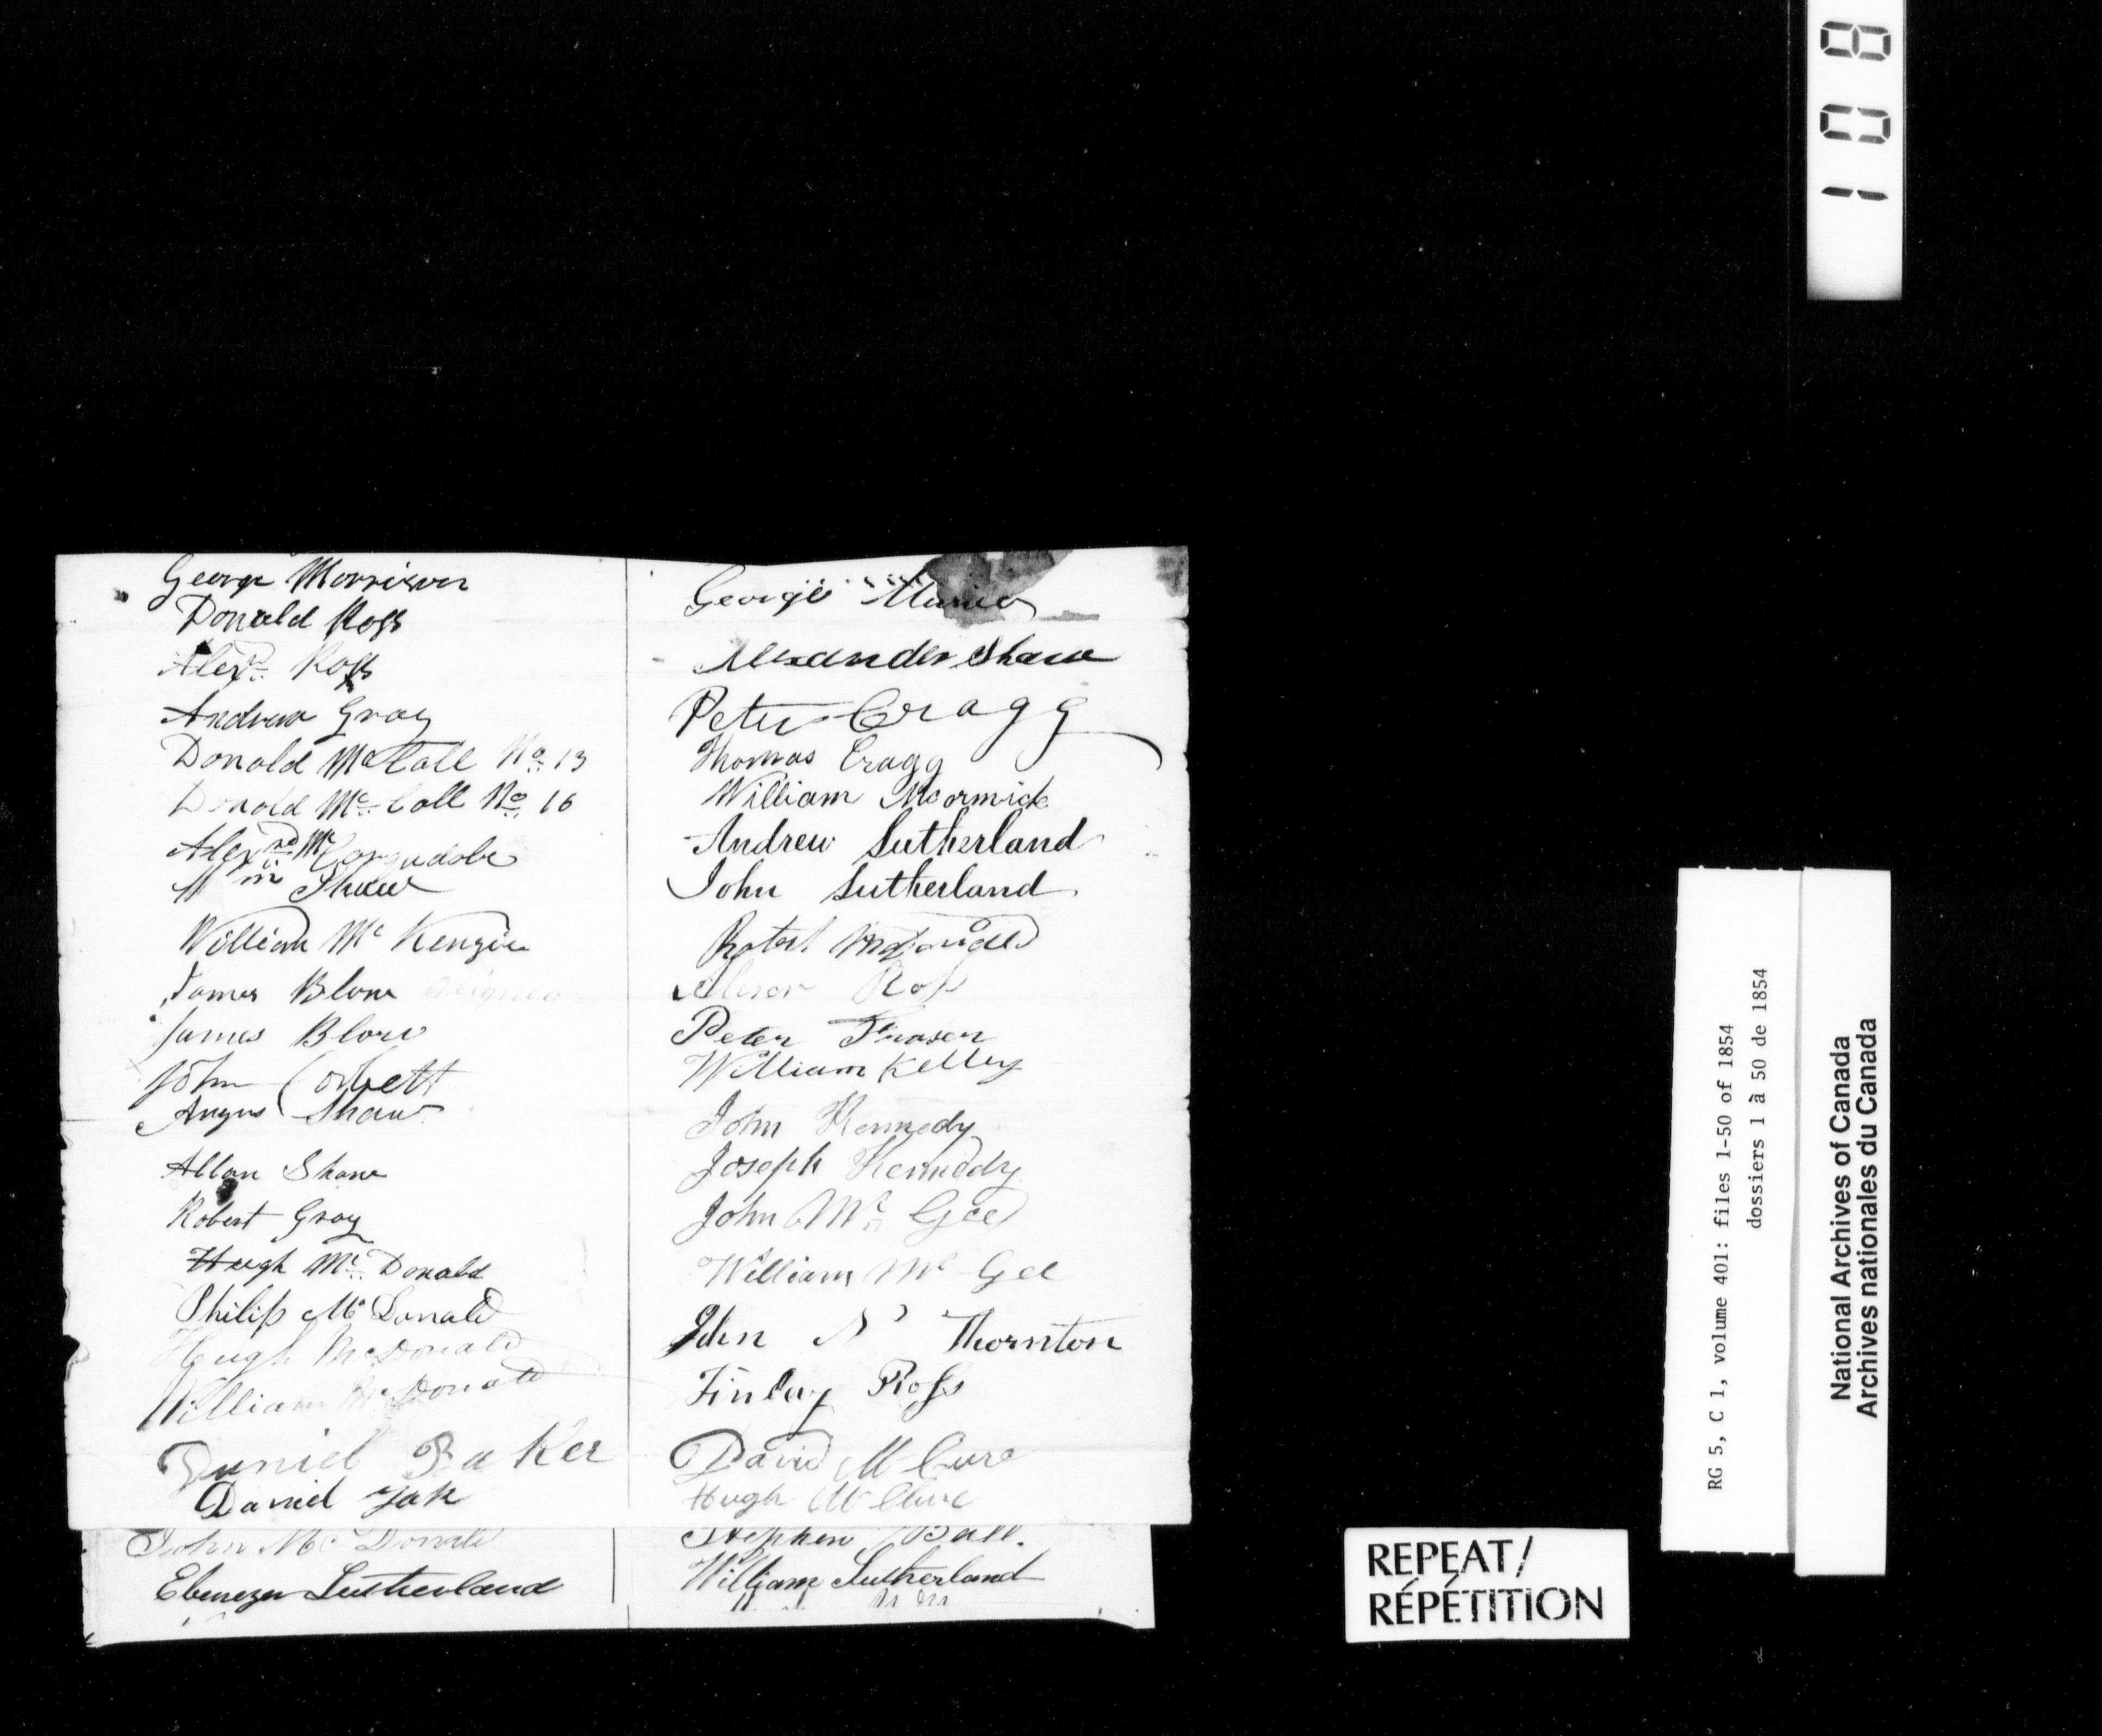 George Morrison
Donald Ross
Alexr. Ross
Andrew Gray
Donald McCall No. 13
Donald Mc. Call No. 16
Alexnd Mc
Wm Shaw
William Mc Kenzie
James Blore
James Blore
John Corbett
Angus Shaw
Allan Shaw
Robert Gray
Hugh Mc. Donald
Philip Mc Donald
Hugh McDonald
William McDonald
Daniel Baker
Daniel
John Mc Donald
Ebenezer Sutherland
George
Alexander Shaw
Peter Cragg
Thomas Cragg
William Mcormick
Andrew Sutherland
John Sutherland
Robert
Ross
Peter Fraser
William Kelley
John Kennedy
Joseph Kennedy
John Mc. Gee
William Mc Gee
John Thornton
Finlay Ross
David M Cure
Hugh M Clure
Stephen Ball.
William Sutherland
108
RG 5, C 1, volume 401: files 1-50 of 1854
dossiers 1 à 50 de 1854
National Archives of Canada
Archives nationales du Canada
REPEAT/
RÉPÉTITION